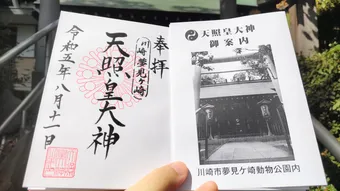 奉拝
川崎夢見ヶ崎
天照皇大神
令和五年八月十一日
天照皇大神
御案内
川崎市夢見ケ崎動物公園内